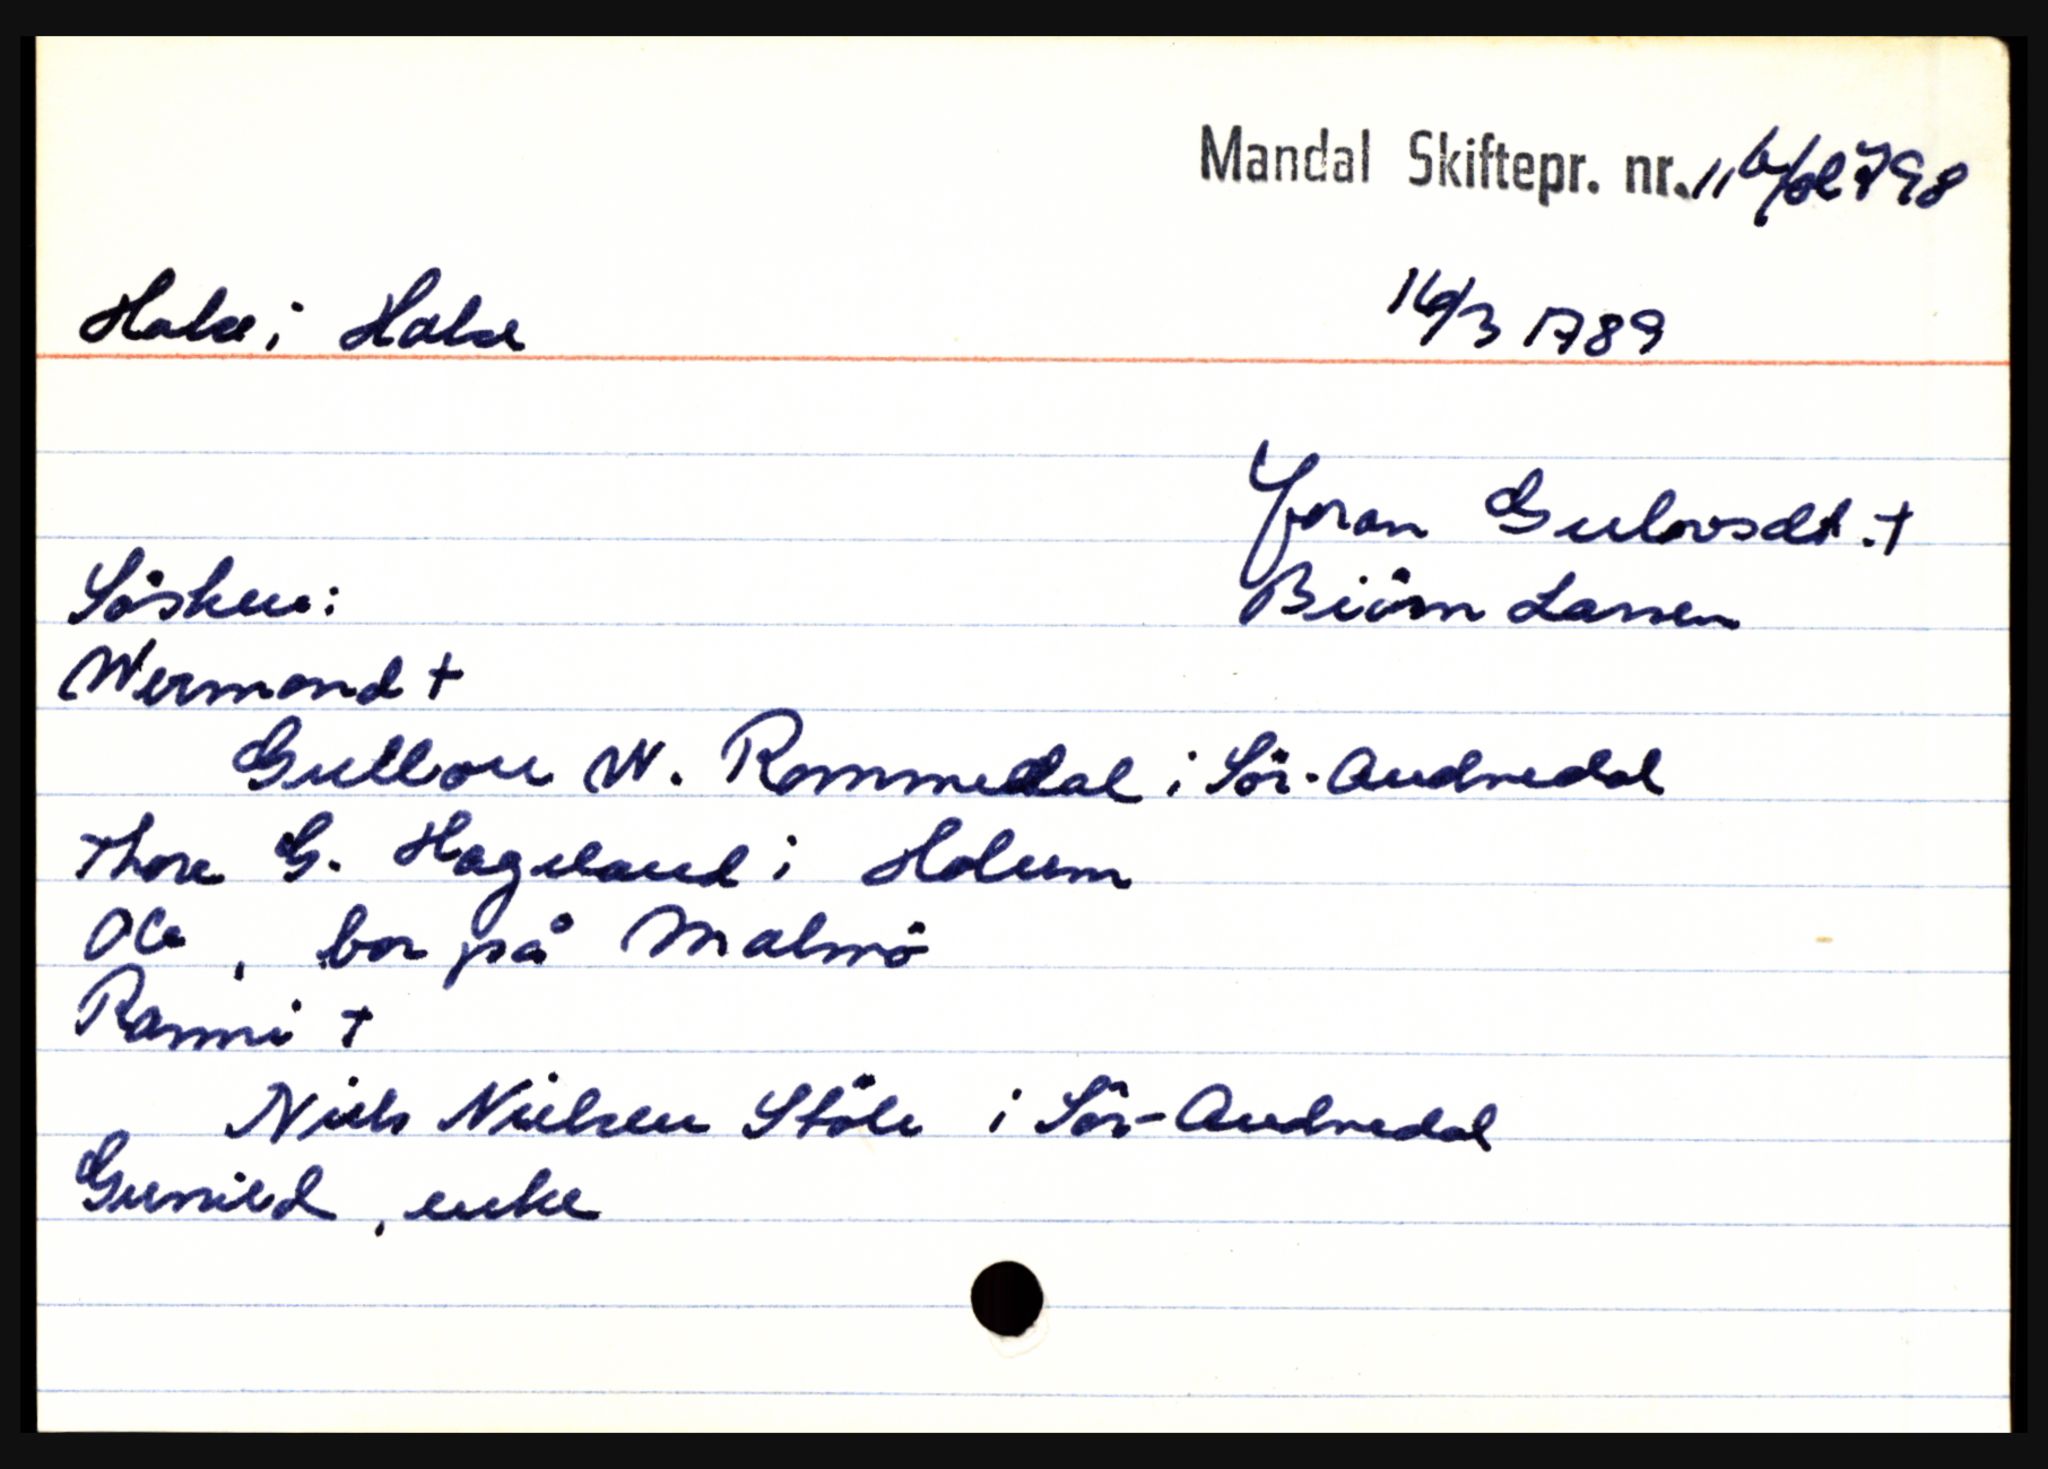 Mandal Skiftepr. nr. 11 b/fol 798
Halse i Halse 16/3 1789
Joran Gulovsdt. †
Søsken: Biörn Larsen
Wermond †
Gullou W. Rommedal i Sör-Audnedal
Thore G. Hageland i Holum
Ole, bor på Malmö
Ranni †
Niels Nielsen Støle i Sör-Audnedal
Gunild, enke